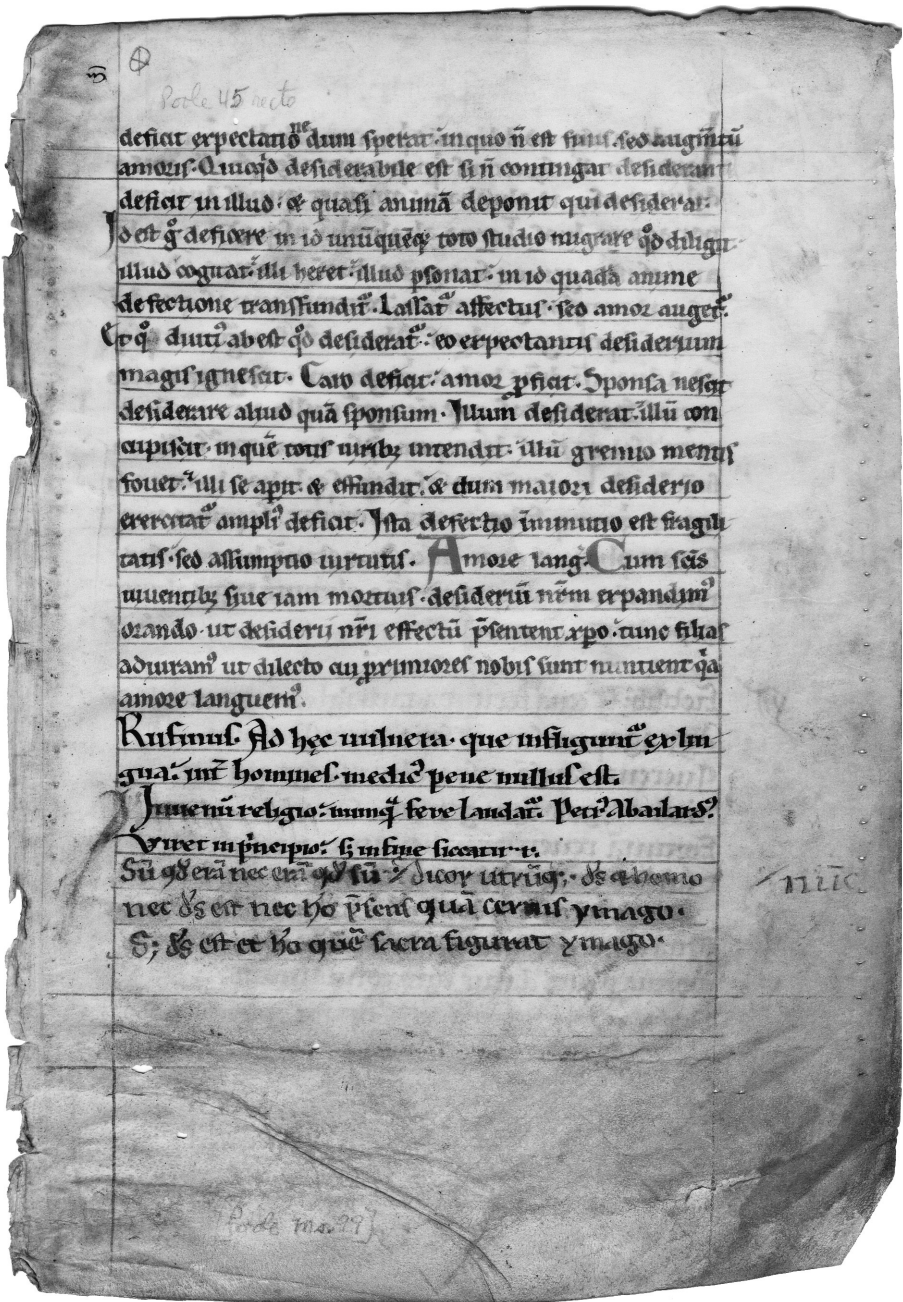 Poole 45 recto
deficit expectatione dum sperat · in quo n̄ est finis · sed augm̄tū
amoris · Quicq̇d desiderabile est si n̄ contingat desiderant
deficit in illud · & quasi animā deponit qui desiderat ·
Id est g̊ deficere in id unūquēq; toto studio migrare q̊d diligit
illud cogitat · illi heret · illud ꝑsonat · in id quadā anime
defectione transfundit᷑ · Lassat᷑ affectus · sed amor auget᷑ ·
Et q̊ diutiꝰ abest q̊d desiderat᷑ · eo expectantis desiderium
magis ignescit · Caro deficit · amor ꝓficit · Sponsa nescit
desiderare aliud quā sponsum · Illum desiderat · illū con
cupiscit · in quē totis uirib; intendit · illū gremio mentis
fouet · illi se aperit · & effundit · & dum maiori desiderio
exercitat᷑ ampliꝰ deficit · Ista defectio īminutio est fragili
tatis · sed assumptio uirtutis · Amore lang · Cum sc̄is
uiuentib; siue iam mortuis · desideriū nr̄m expandimꝰ
orando · ut desiderii nr̄i effectū p̄sentent xp̄o · tunc filias
adiuramꝰ ut dilecto cui ꝓximiores nobis sunt nuntient q̇a
amore languemꝰ ·
Rufinus · Ad hęc uulnera · que infligunt᷑ ex lin
gua · int̄ homines · medicꝰ pene nullus est ·
Iuuenū religio · numq̄ fere laudat᷑ · Petrꝰ Abailardꝰ
Viret in ṗncipio · s; in fine siccatur ·
Sū qd̓ erā nec erā qd̓ sū · dicor utrūq; · ds̄ & homo
nec ds̄ est nec ho p̄sens quā cernis ymago ·
S; ds̄ est et ho quē sacra figurat ymago ·
[Poole ms. 99]